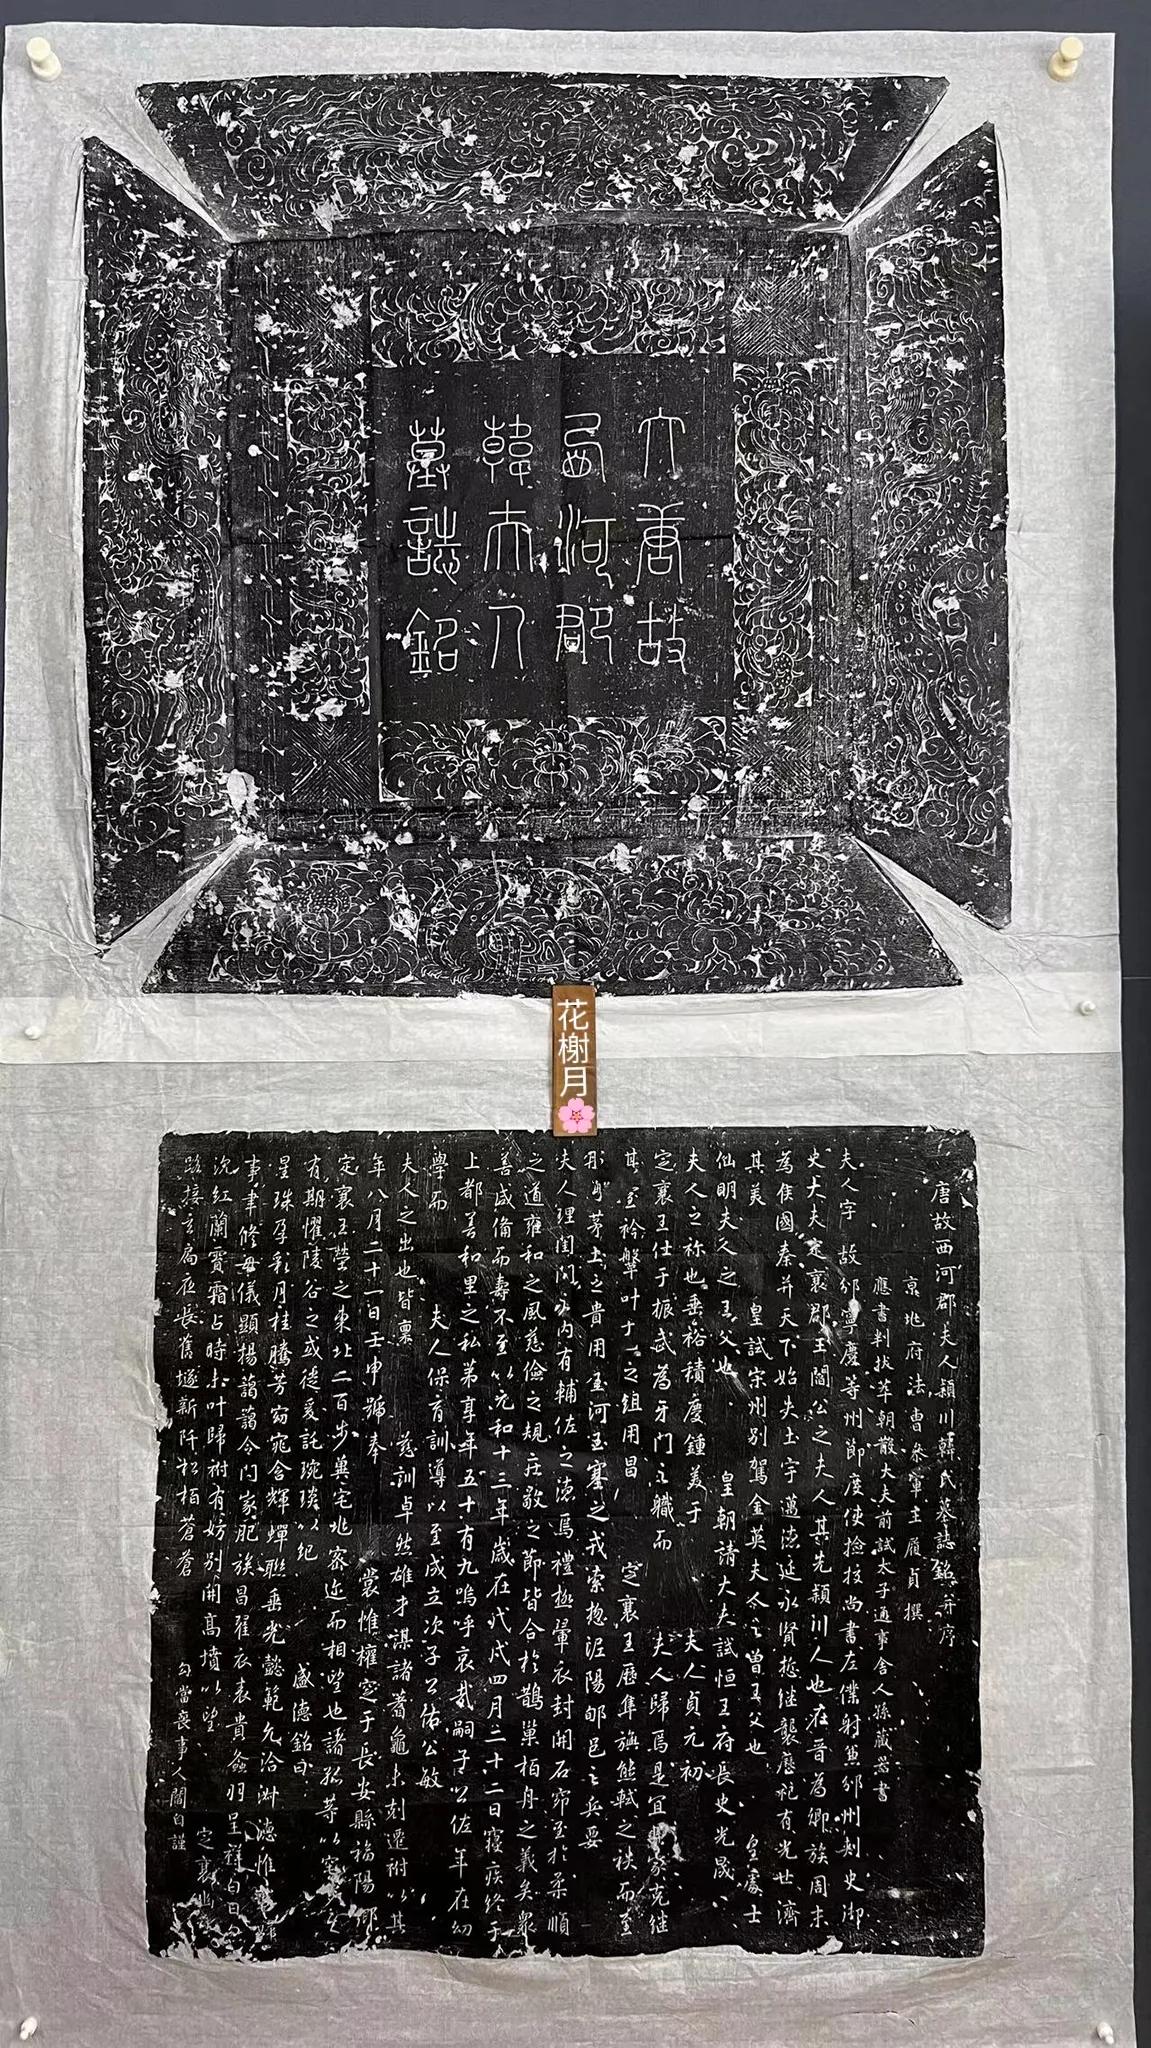 大唐故
西河郡
韓夫人
墓誌銘
花榭月
唐故西河郡夫人潁川韓氏墓誌銘并序
京兆府法曹參軍王履貞撰
應書判拔萃朝散大夫前試太子通事舍人孫藏器書
夫人字 故邠寧慶等州節度使撿挍尚書左僕射兼邠州刺史御
史大夫定襄郡王閻公之夫人其先潁川人也在晉為卿族周末
為侯國秦并天下始失土宇邁德延永賢愁継襲歷祀有光世濟
其美 皇試宋州別駕金英夫人之曾王父也 皇處士
仙明夫人之王父也 皇朝請大夫試恒王府長史光晟
夫人之祢也垂裕積慶鍾美于 夫人貞元初
定襄王仕于振武為牙門之職而 夫人歸焉是宜其家克継
其室衿鞶叶 之俎用昌 定襄王歷隼旟熊軾之秩而至
彤弓茅土之貴用 河 塞之戎索揔涇陽郇邑之兵要
夫人理閨閫 內有輔佐之德焉禮極翬衣封開石窌至扵柔順
之道雍和之風慈儉之規莊敬之節皆合於鵲巢栢舟之義矣衆
善咸俻而壽不至以元和十三年歲在戊戌四月二十二日寢疾終于
上都善和里之私第享年五十有九嗚呼哀哉嗣子公佐年在幼
學而 夫人保育訓導以至成立次子公佑公敏
夫人之出也皆禀 慈訓卓然雄才謀諸蓍龜 刻遷祔以其
年八月二十一日壬申號奉 裳惟櫬窆于長安縣福陽鄉
定襄王塋之東北二百步奠宅兆密迩而相望也諸孤等以
有期懼陵谷之或徙爰託琬琰以紀 盛德銘曰
星珠孕彩月桂騰芳窈窕含輝蟬聯垂光懿範允洽淋德惟
事聿修母儀顯揚藹藹令門家肥族昌翟衣表貴龜羽呈祥日日
沉紅蘭霣霜占時 叶歸祔有妨別開高墳以望 定襄
路接玄扃夜長舊墟新阡松柏蒼蒼 勾當喪事人閻自謹